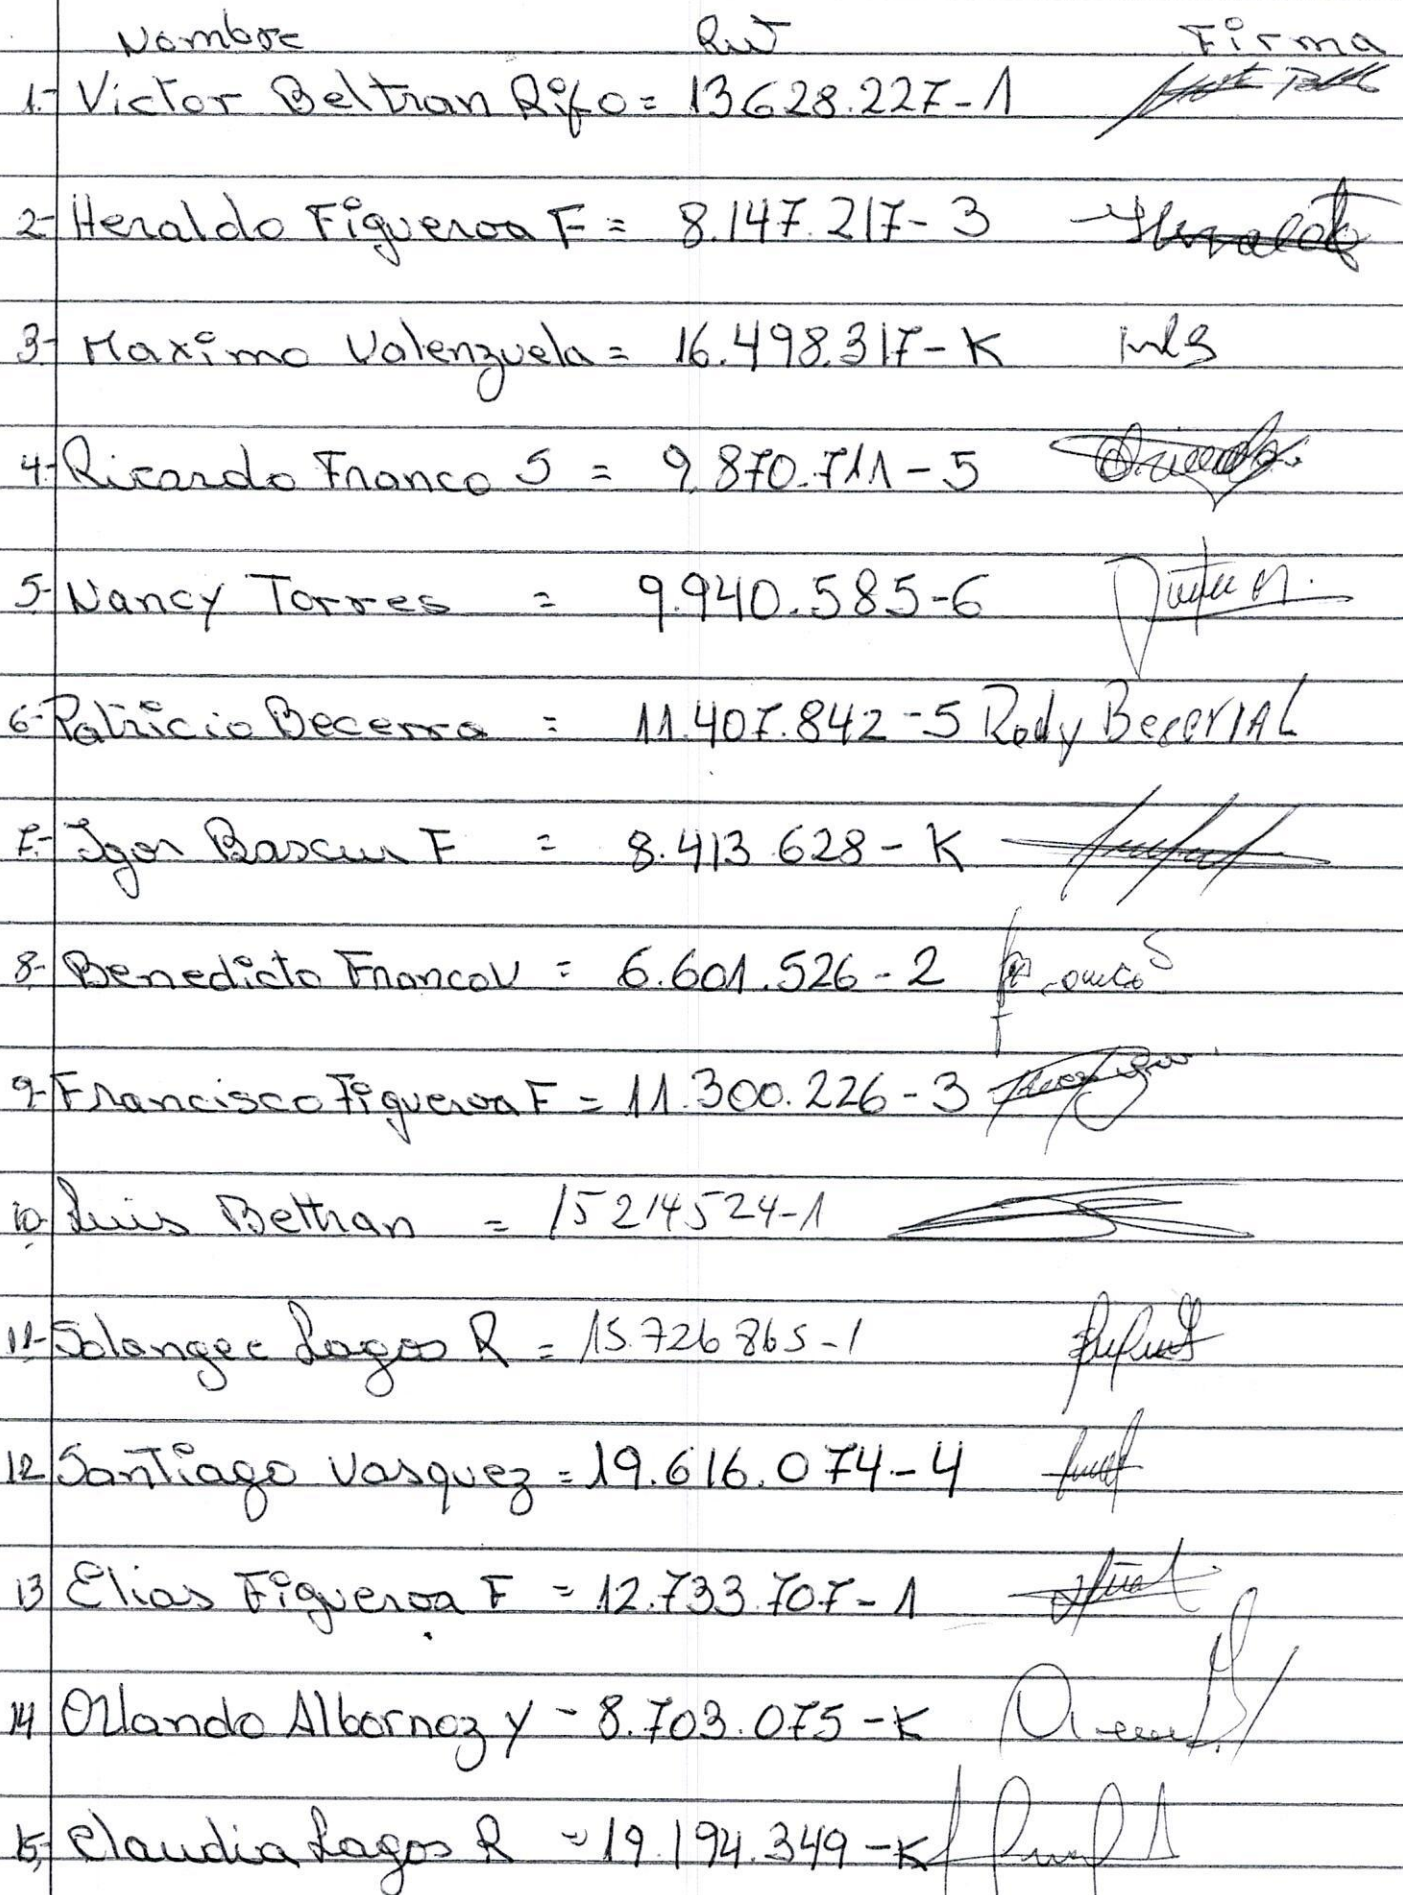 Nombre Rut Firma
1.- Victor Beltran Rifo = 13628.227-1
2- Heraldo Figueroa F = 8.147.217-3 Heraldo
3- Maximo Valenzuela = 16.498.317-K
4- Ricardo Franco S = 9.870.711-5
5- Nancy Torres = 9.940.585-6
6- Patricio Becerra = 11.407.842-5 Becerra L
7.- Igor Bascur F = 8.413.628-K
8- Benedicto Franco V = 6.601.526-2
9- Francisco Figueroa F = 11.300.226-3
10 Luis Beltran = 15214524-1
11- Solangee Lagos R = 15.726865-1
12 Santiago Vasquez = 19.616.074-4
13 Elias Figueroa F = 12.733.707-1
14 Orlando Albornoz Y - 8.703.075-K
15, Claudia Lagos R - 19.194.349-K